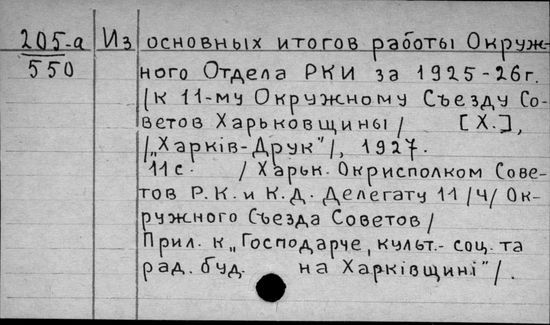 205-а
550
Из основных итогов работы Окруж-
ного Отдела РКИ за 1925-26г.
/к 11-му Окружному Съезду Со-
ветов Харьковщины/ [Х.],
/„Харків-Друк"/, 1927.
11с. /Харьк. Окрисполком Сове-
тов Р.К. и К.Д. Делегату 11/Ч/ Ок-
ружного Съезда Советов/
Прил. к „Господарче, культ.- соц. та
рад. буд. на Харківщині"/.